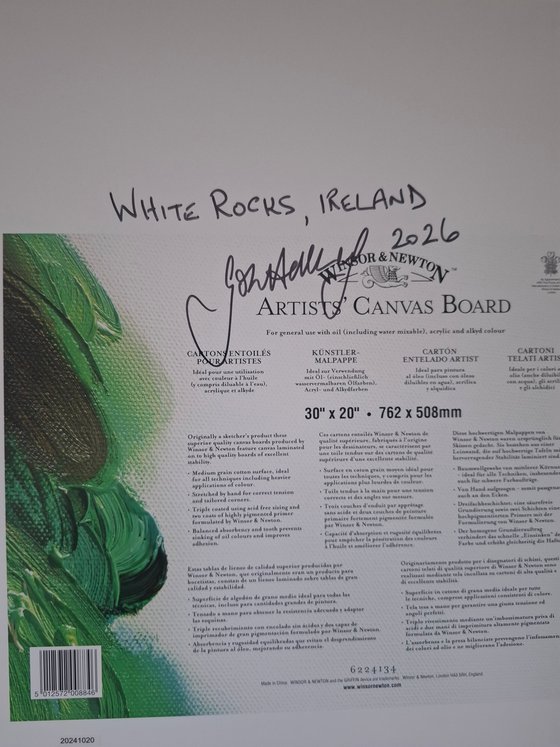 WHITE ROCKS, IRELAND
2026
WINSOR & NEWTON™
ARTISTS' CANVAS BOARD
For general use with oil (including water mixable), acrylic and alkyd colour
CARTONS ENTOILÉS
POUR ARTISTES
Idéal pour une utilisation
avec couleur à l'huile
(y compris diluable à l'eau),
acrylique et alkyde
KÜNSTLER-
MALPAPPE
Ideal zur Verwendung
mit Öl- (einschließlich
wasservermalbaren Ölfarben),
Acryl- und Alkydfarben
CARTÓN
ENTELADO ARTIST
Ideal para pintura
al óleo (incluso con óleos
diluibles en agua), acrílica
y alquídica
CARTONI
TELATI ARTIS
Ideale per i colori a
olio (anche diluibili
con acqua), gli acril
e gli alchidici
30" x 20" • 762 x 508mm
Originally a sketcher's product these
superior quality canvas boards produced by
Winsor & Newton feature canvas laminated
on to high quality boards of excellent
stability.
- Medium grain cotton surface, ideal
for all techniques including heavier
applications of colour.
- Stretched by hand for correct tension
and tailored corners.
- Triple coated using acid free sizing and
two coats of highly pigmented primer
formulated by Winsor & Newton.
- Balanced absorbency and tooth prevents
sinking of oil colours and improves
adhesion.
Ces cartons entoilés Winsor & Newton de
qualité supérieure, fabriqués à l'origine
pour les dessinateurs, se caractérisent par
une toile tendue sur des cartons de qualité
supérieure d'une excellente stabilité.
- Surface en coton grain moyen idéal pour
toutes les techniques, y compris pour les
applications plus lourdes de couleur.
- Toile tendue à la main pour une tension
correcte et des angles sur mesure.
- Trois couches d'enduit par apprêtage
sans acide et deux couches de peinture
primaire fortement pigmentée formulée
par Winsor & Newton.
- Capacité d'absorption et rugosité équilibrées
pour empêcher la pénétration des couleurs
à l'huile et améliorer l'adhérence.
Diese hochwertigen Malpappen von
Winsor & Newton waren ursprünglich für
Skizzen gedacht. Sie bestehen aus einer
Leinwand, die auf hochwertige Tafeln mit
hervorragender Stabilität laminiert sind
- Baumwollgewebe von mittlerer Körnung
- ideal für alle Techniken, insbesondere
auch für schwere Farbaufträge.
- Von Hand aufgezogen - somit passgenau
auch an den Ecken.
- Dreifachbeschichtet; eine säurefreie
Grundierung sowie zwei Schichten eines
hochpigmentierten Primers mit der
Formulierung von Winsor & Newton.
- Der bewegene Grundierauftrag
verhindert das schnelle „Einsinken" der
Farbe und erhöht gleichzeitig die Haftu
Estas tablas de lienzo de calidad superior producidas por
Winsor & Newton, que originalmente eran un producto para
bocetistas, constan de un lienzo laminado sobre tablas de gran
calidad y estabilidad.
- Superficie de algodón de grano medio ideal para todas las
técnicas, incluso para cantidades grandes de pintura.
- Tensado a mano para obtener la resistencia adecuada y adaptar
las esquinas.
- Triple recubrimiento con encolado sin ácidos y dos capas de
imprimador de gran pigmentación formulado por Winsor & Newton.
- Absorbencia y rugosidad equilibradas que evitan el desprendimiento
de la pintura al óleo, mejorando su adherencia
Originariamente prodotto per i disegnatori di schizzi, questi
cartoni telati di qualità superiore di Winsor & Newton sono
realizzati mediante tela incollata su cartoni di alta qualità e
di eccellente stabilità.
- Superficie in cotone di grana media ideale per tutte
le tecniche, comprese applicazioni consistenti di colore.
- Tela tesa a mano per garantire una giusta tensione ed
angoli perfetti.
- Triplo rivestimento mediante un'imbonimatura priva di
acidi e due mani di imprimitura altamente pigmentata
formulata da Winsor & Newton.
- L'assorbenza e la presa bilanciate prevengono l'infossamento
dei colori ad olio e ne migliorano l'adesione.
6224134
Made in China. WINSOR & NEWTON and the GRIFFIN device are trademarks. Winsor & Newton, London HA3 5RH, England.
www.winsornewton.com
5 012572 008846
20241020